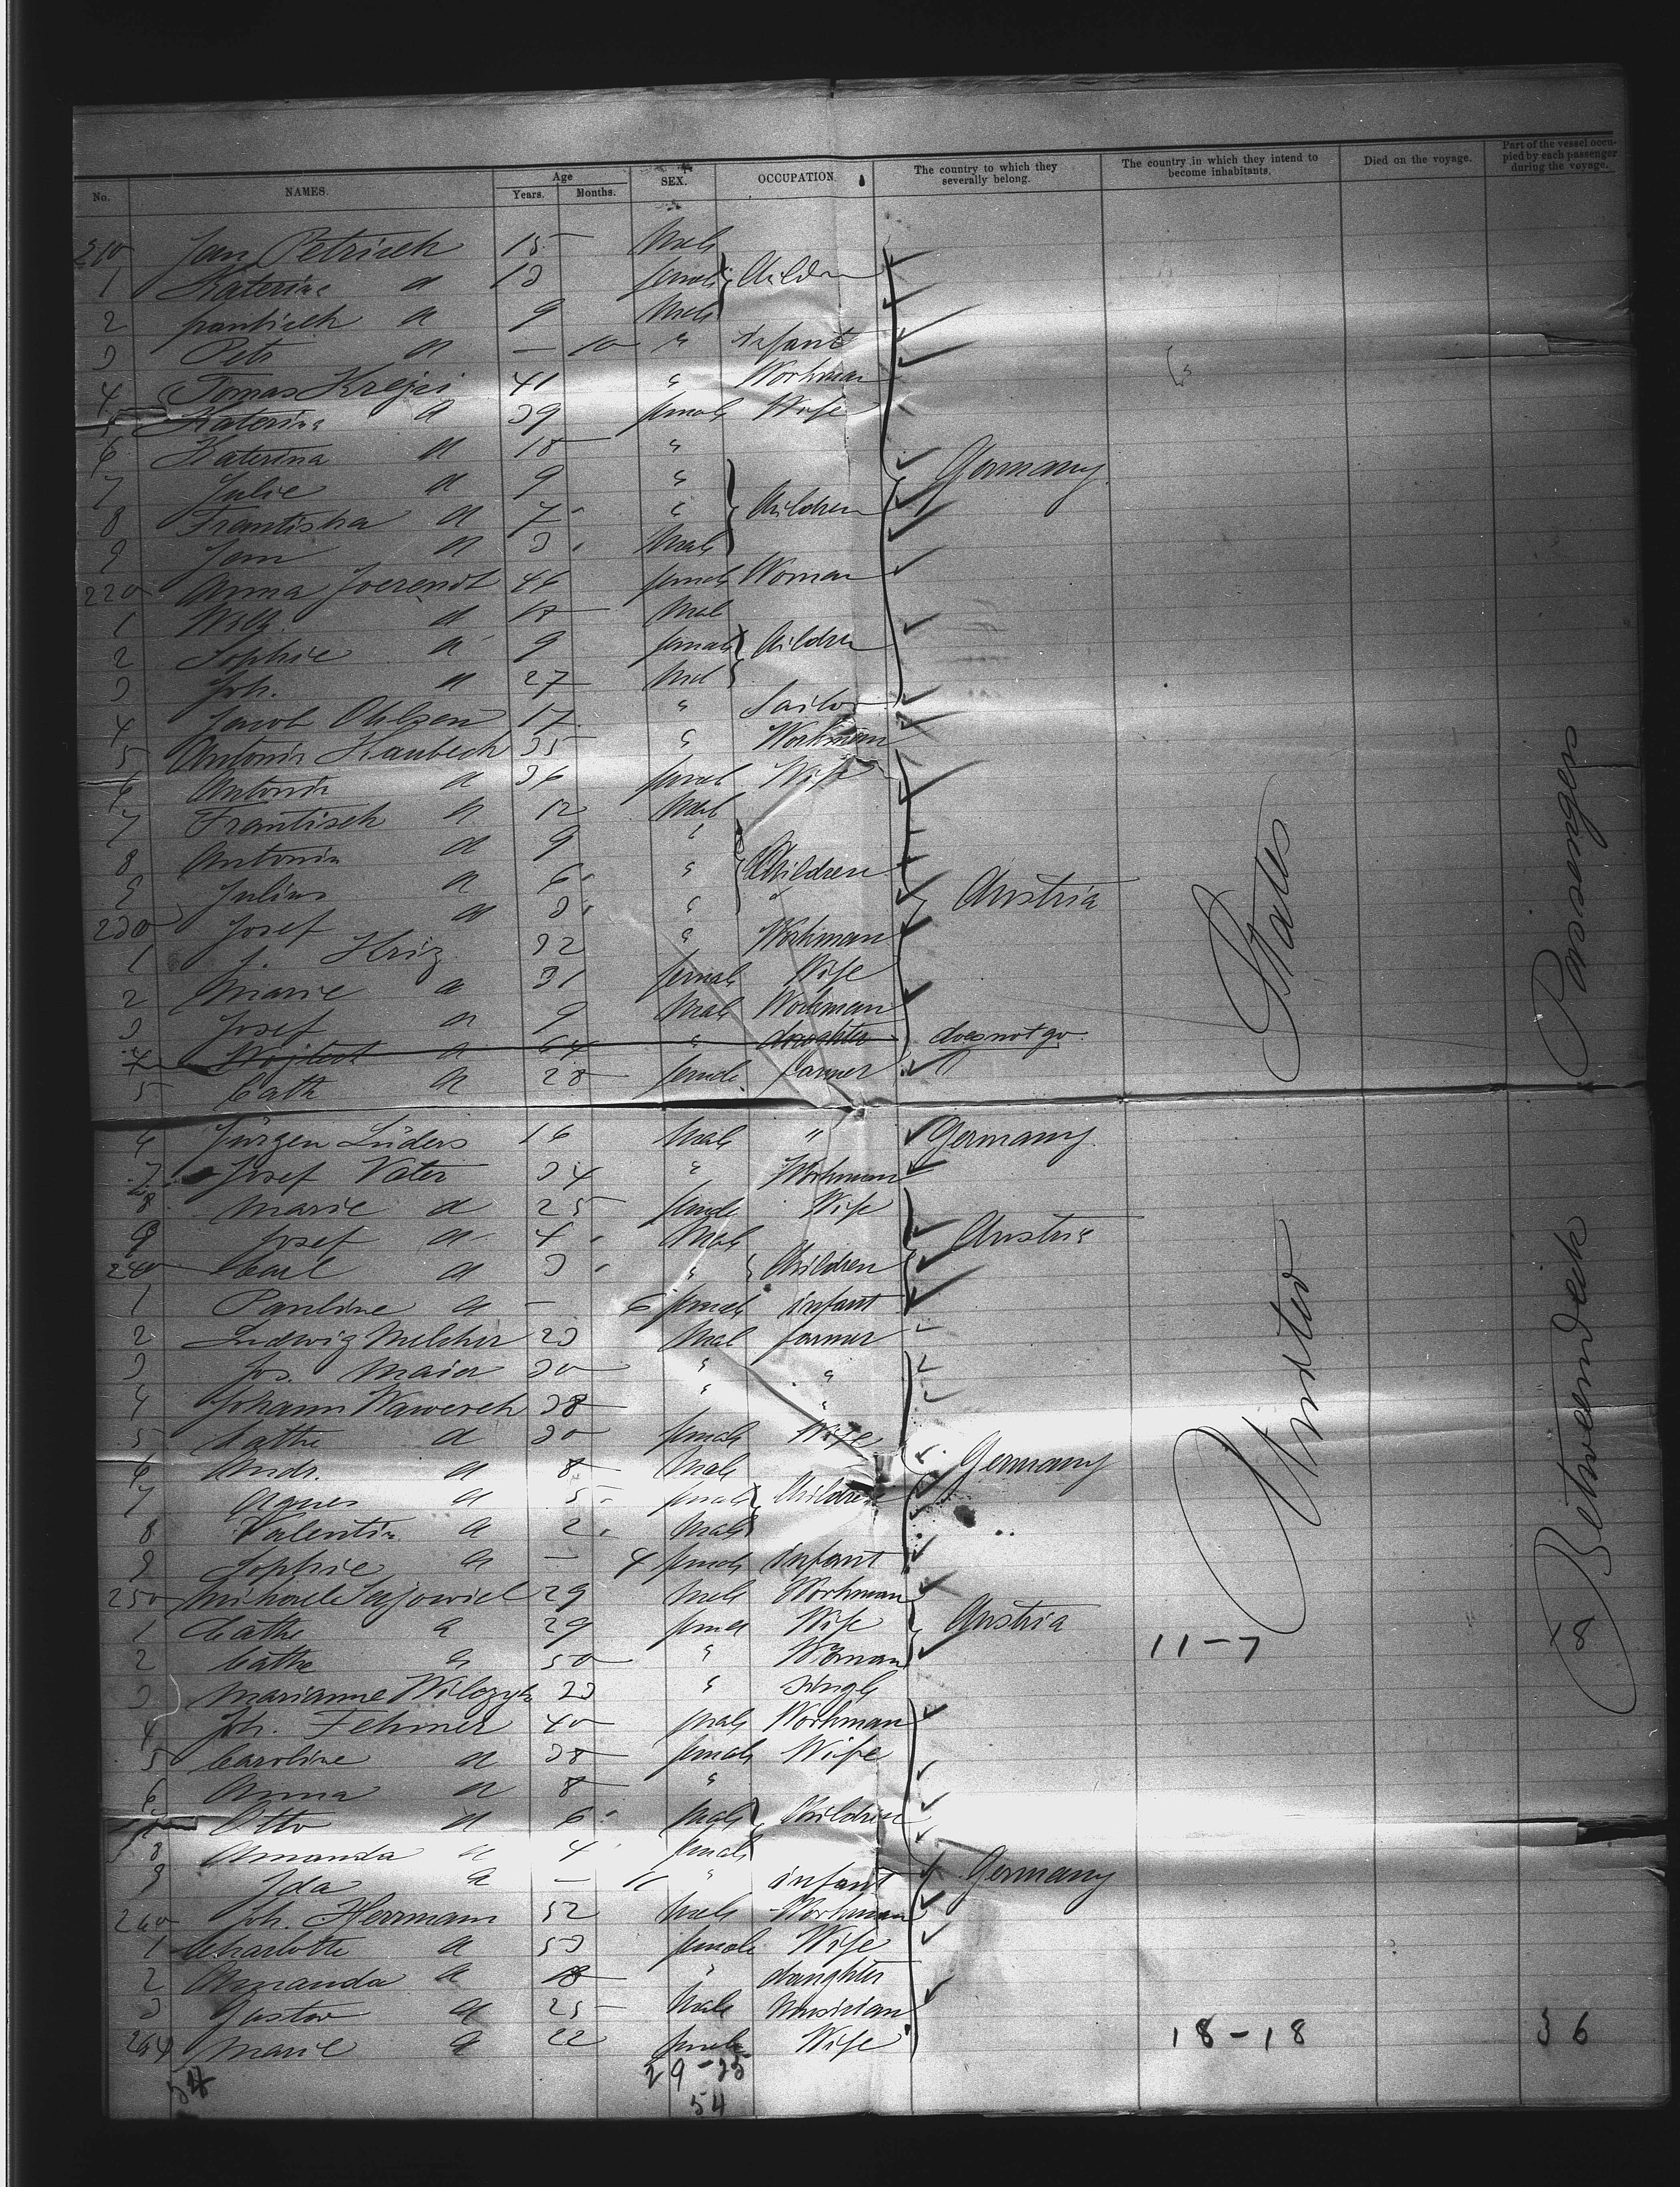 No. NAMES. Age Years. Months. SEX. OCCUPATION. The country to which they severally belong. The country in which they intend to become inhabitants. Died on the voyage. Part of the vessel occupied by each passenger during the voyage.
210 Jan Petrisch 15 Male
1 Katerina a 13 female Children
2 frantisch a 9 Male
3 Petr a — 10 " Infant
4 Tomas Krejci 41 " Workman
5 Katerina a 39 female Wife
6 Katerina a 18 "
7 Julie a 9 " Germany
8 Frantiska a 7 " Children
9 Jan a 3 Male
220 Anna 46 female Woman
1 Wilh. a Male
2 Sophie a 9 female Children
3 Joh. a 27 Male
4 Jacob Ohlsen 17 " Sailor
5 Antonin Kaubech 35 " Workman
6 Antonia a 36 female Wife
7 Frantisch a 12 Male
8 Antonin a 9 "
9 Julius a 6 " Children Austria
230 Josef a 3 "
1 J. Kriz 32 " Workman
2 Marie a 31 female Wife
3 Josef a 9 Male Workman
4 a 64 " daughter does not go
5 Cath a 28 female farmer
6 Jürgen Lüders 16 Male " Germany
7 Josef Vater 34 " Workman
8 Marie a 25 female Wife
9 Josef a 4 Male Austria
240 Carl a 3 " Children
1 Pauline a — 6 female infant
2 Ludwig Melcher 23 Male farmer
3 Jos. Maier 30 " "
4 Johann Wawerek 38 " "
5 Cathe a 30 female Wife
6 Andr. a 8 Male Germany
7 Agnes a 5 female Children
8 Valentin a 2 Male
9 Sophie a — 4 female Infant
250 Michael 29 Male Workman
1 Cathe a 29 female Wife Austria
2 Cathe a 50 " Woman 11-7
3 Marianne Wilczyk 23 " Single
4 Joh. Fehmer 40 Male Workman
5 Caroline a 38 female Wife
6 Anna a 8 "
7 Otto a 6 Male Children
8 Amanda a 4 female
9 Ida a — 11 " infant Germany
260 Joh. Herrmann 52 Male Workman
1 Charlotte a 53 female Wife
2 Amanda a 18 " daughter
3 Gustav a 25 Male Musician
264 Marie a 22 female Wife 18-18 36
54 29-25
54
United States
Betweendeck Passengers